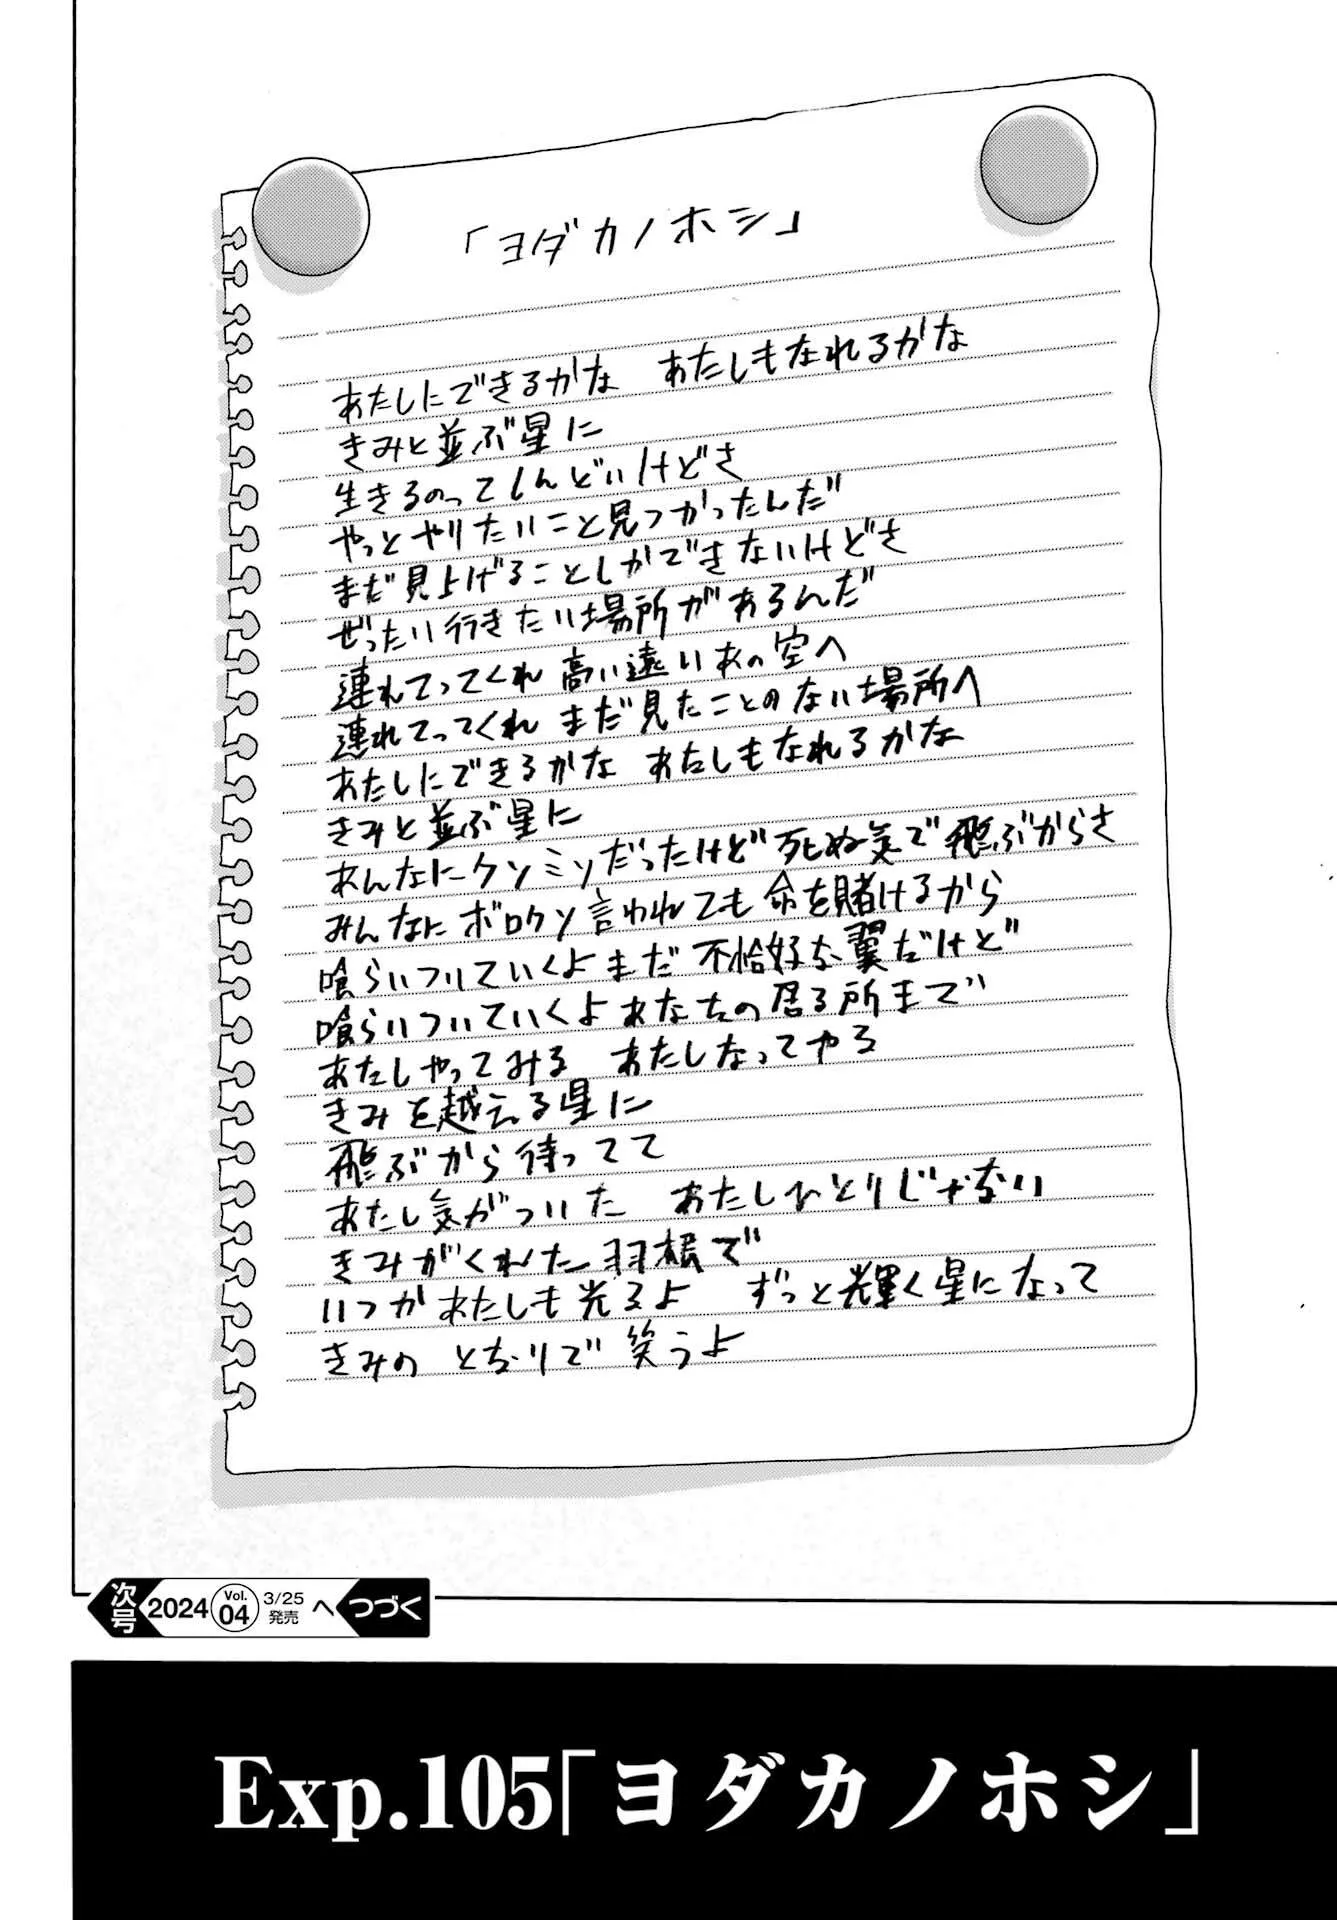 「ヨダカノホシ」
あたしにできるかな　あたしもなれるかな
きみと並ぶ星に
生きるのってしんどいけどさ
やっとやりたいこと見つかったんだ
まだ見上げることしかできないけどさ
ぜったい行きたい場所があるんだ
連れてってくれ 高い遠いあの空へ
連れてってくれ まだ見たことのない場所へ
あたしにできるかな　あたしもなれるかな
きみと並ぶ星に
あんなにクソミソだったけど 死ぬ気で飛ぶからさ
みんなにボロクソ言われても 命を賭けるから
喰らいついていくよ まだ 不恰好な翼だけど
喰らいついていくよ あなたの居る所まで
あたしやってみる　あたしなってやる
きみを越える星に
飛ぶから待ってて
あたし気がついた　あたしひとりじゃない
きみがくれた羽根で
いつかあたしも光るよ　ずっと輝く星になって
きみの となりで 笑うよ
次号 2024 Vol. 04 3/25 発売 へ つづく
Exp.105「ヨダカノホシ」